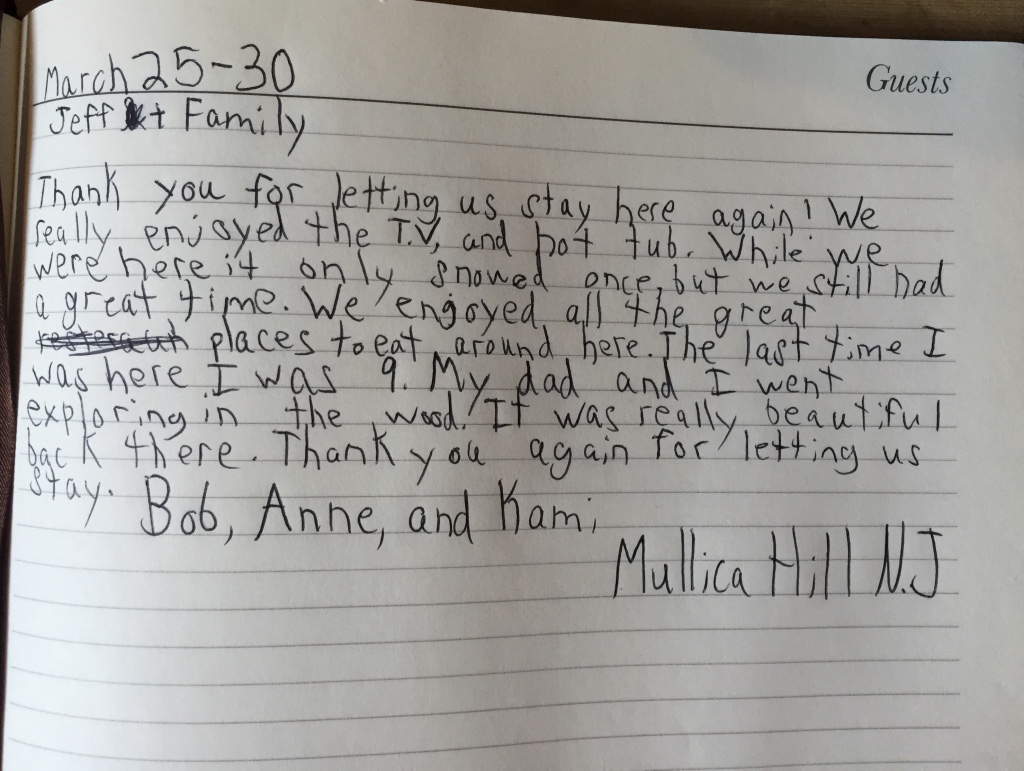 Guests
March 25-30
Jeff + Family
Thank you for letting us stay here again! We
really enjoyed the T.V, and hot tub. While we
were here it only snowed once, but we still had
a great time. We enjoyed all the great
places to eat around here. The last time I
was here I was 9. My dad and I went
exploring in the wood! It was really beautiful
back there. Thank you again for letting us
stay.
Bob, Anne, and Kami
Mullica Hill N.J